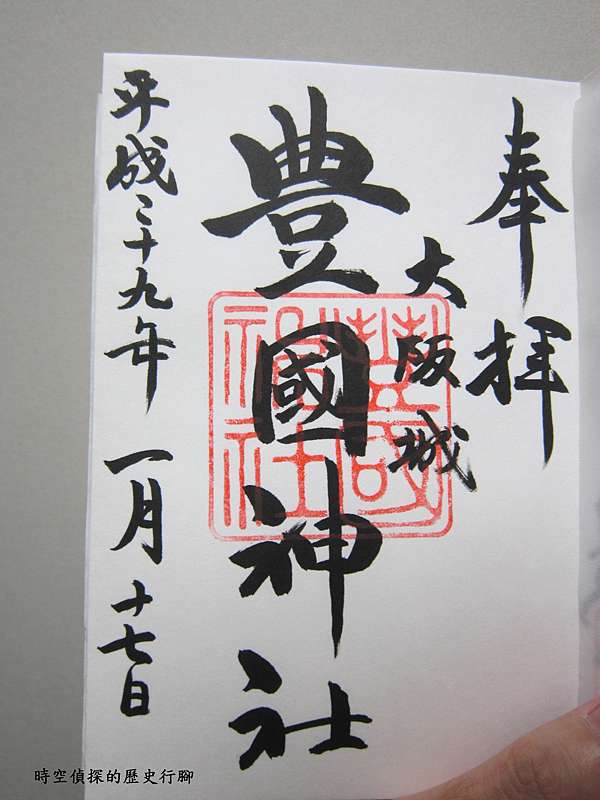 奉拝
大阪城
豊國神社
豊國神社
平成二十九年 一月 十七日
時空偵探的歷史行腳